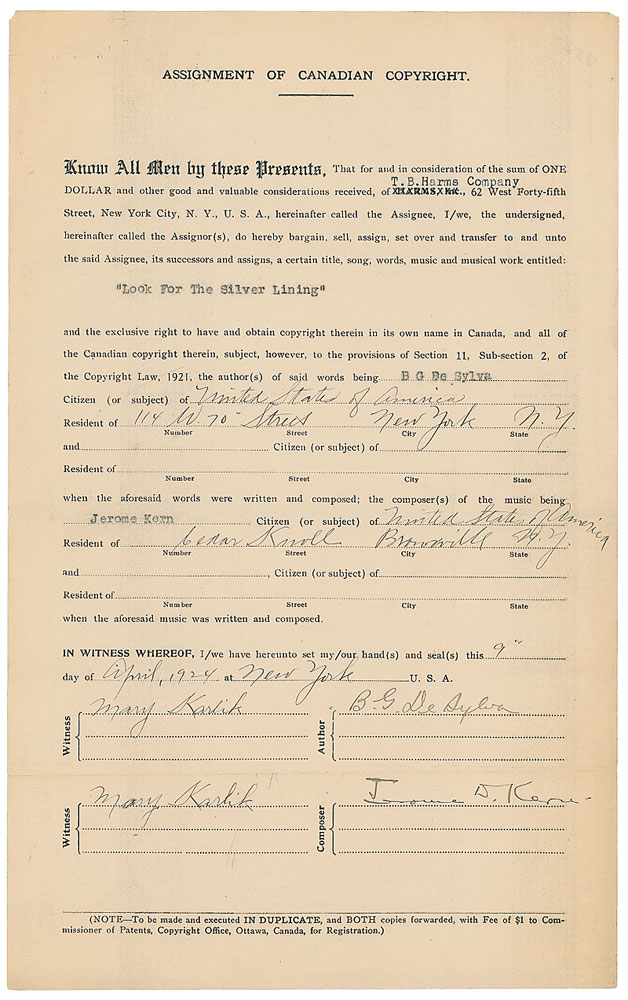 ASSIGNMENT OF CANADIAN COPYRIGHT.
Know All Men by these Presents, That for and in consideration of the sum of ONE
T.B.Harms Company
DOLLAR and other good and valuable considerations received, of HARMS, Inc., 62 West Forty-fifth
Street, New York City, N. Y., U. S. A., hereinafter called the Assignee, I/we, the undersigned,
hereinafter called the Assignor(s), do hereby bargain, sell, assign, set over and transfer to and unto
the said Assignee, its successors and assigns, a certain title, song, words, music and musical work entitled:
"Look For The Silver Lining"
and the exclusive right to have and obtain copyright therein in its own name in Canada, and all of
the Canadian copyright therein, subject, however, to the provisions of Section 11, Sub-section 2, of
the Copyright Law, 1921, the author(s) of said words being B G De Sylva
Citizen (or subject) of United States of America
Resident of 114 W. 70" Street New York N. Y.
Number Street City State
and Citizen (or subject) of
Resident of
Number Street City State
when the aforesaid words were written and composed; the composer(s) of the music being
Jerome Kern Citizen (or subject) of United State of America
Resident of Cedar Knoll Bronxville N.Y.
Number Street City State
and , Citizen (or subject) of
Resident of
Number Street City State
when the aforesaid music was written and composed.
IN WITNESS WHEREOF, I/we have hereunto set my/our hand(s) and seal(s) this 9"
day of April, 1924 at New York U. S. A.
Witness Mary Karlik Author B. G. De Sylva
Witness Mary Karlik Composer Jerome D. Kern
(NOTE—To be made and executed IN DUPLICATE, and BOTH copies forwarded, with Fee of $1 to Com-
missioner of Patents, Copyright Office, Ottawa, Canada, for Registration.)